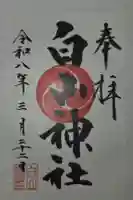 奉拝
白山神社
令和八年三月二十二日